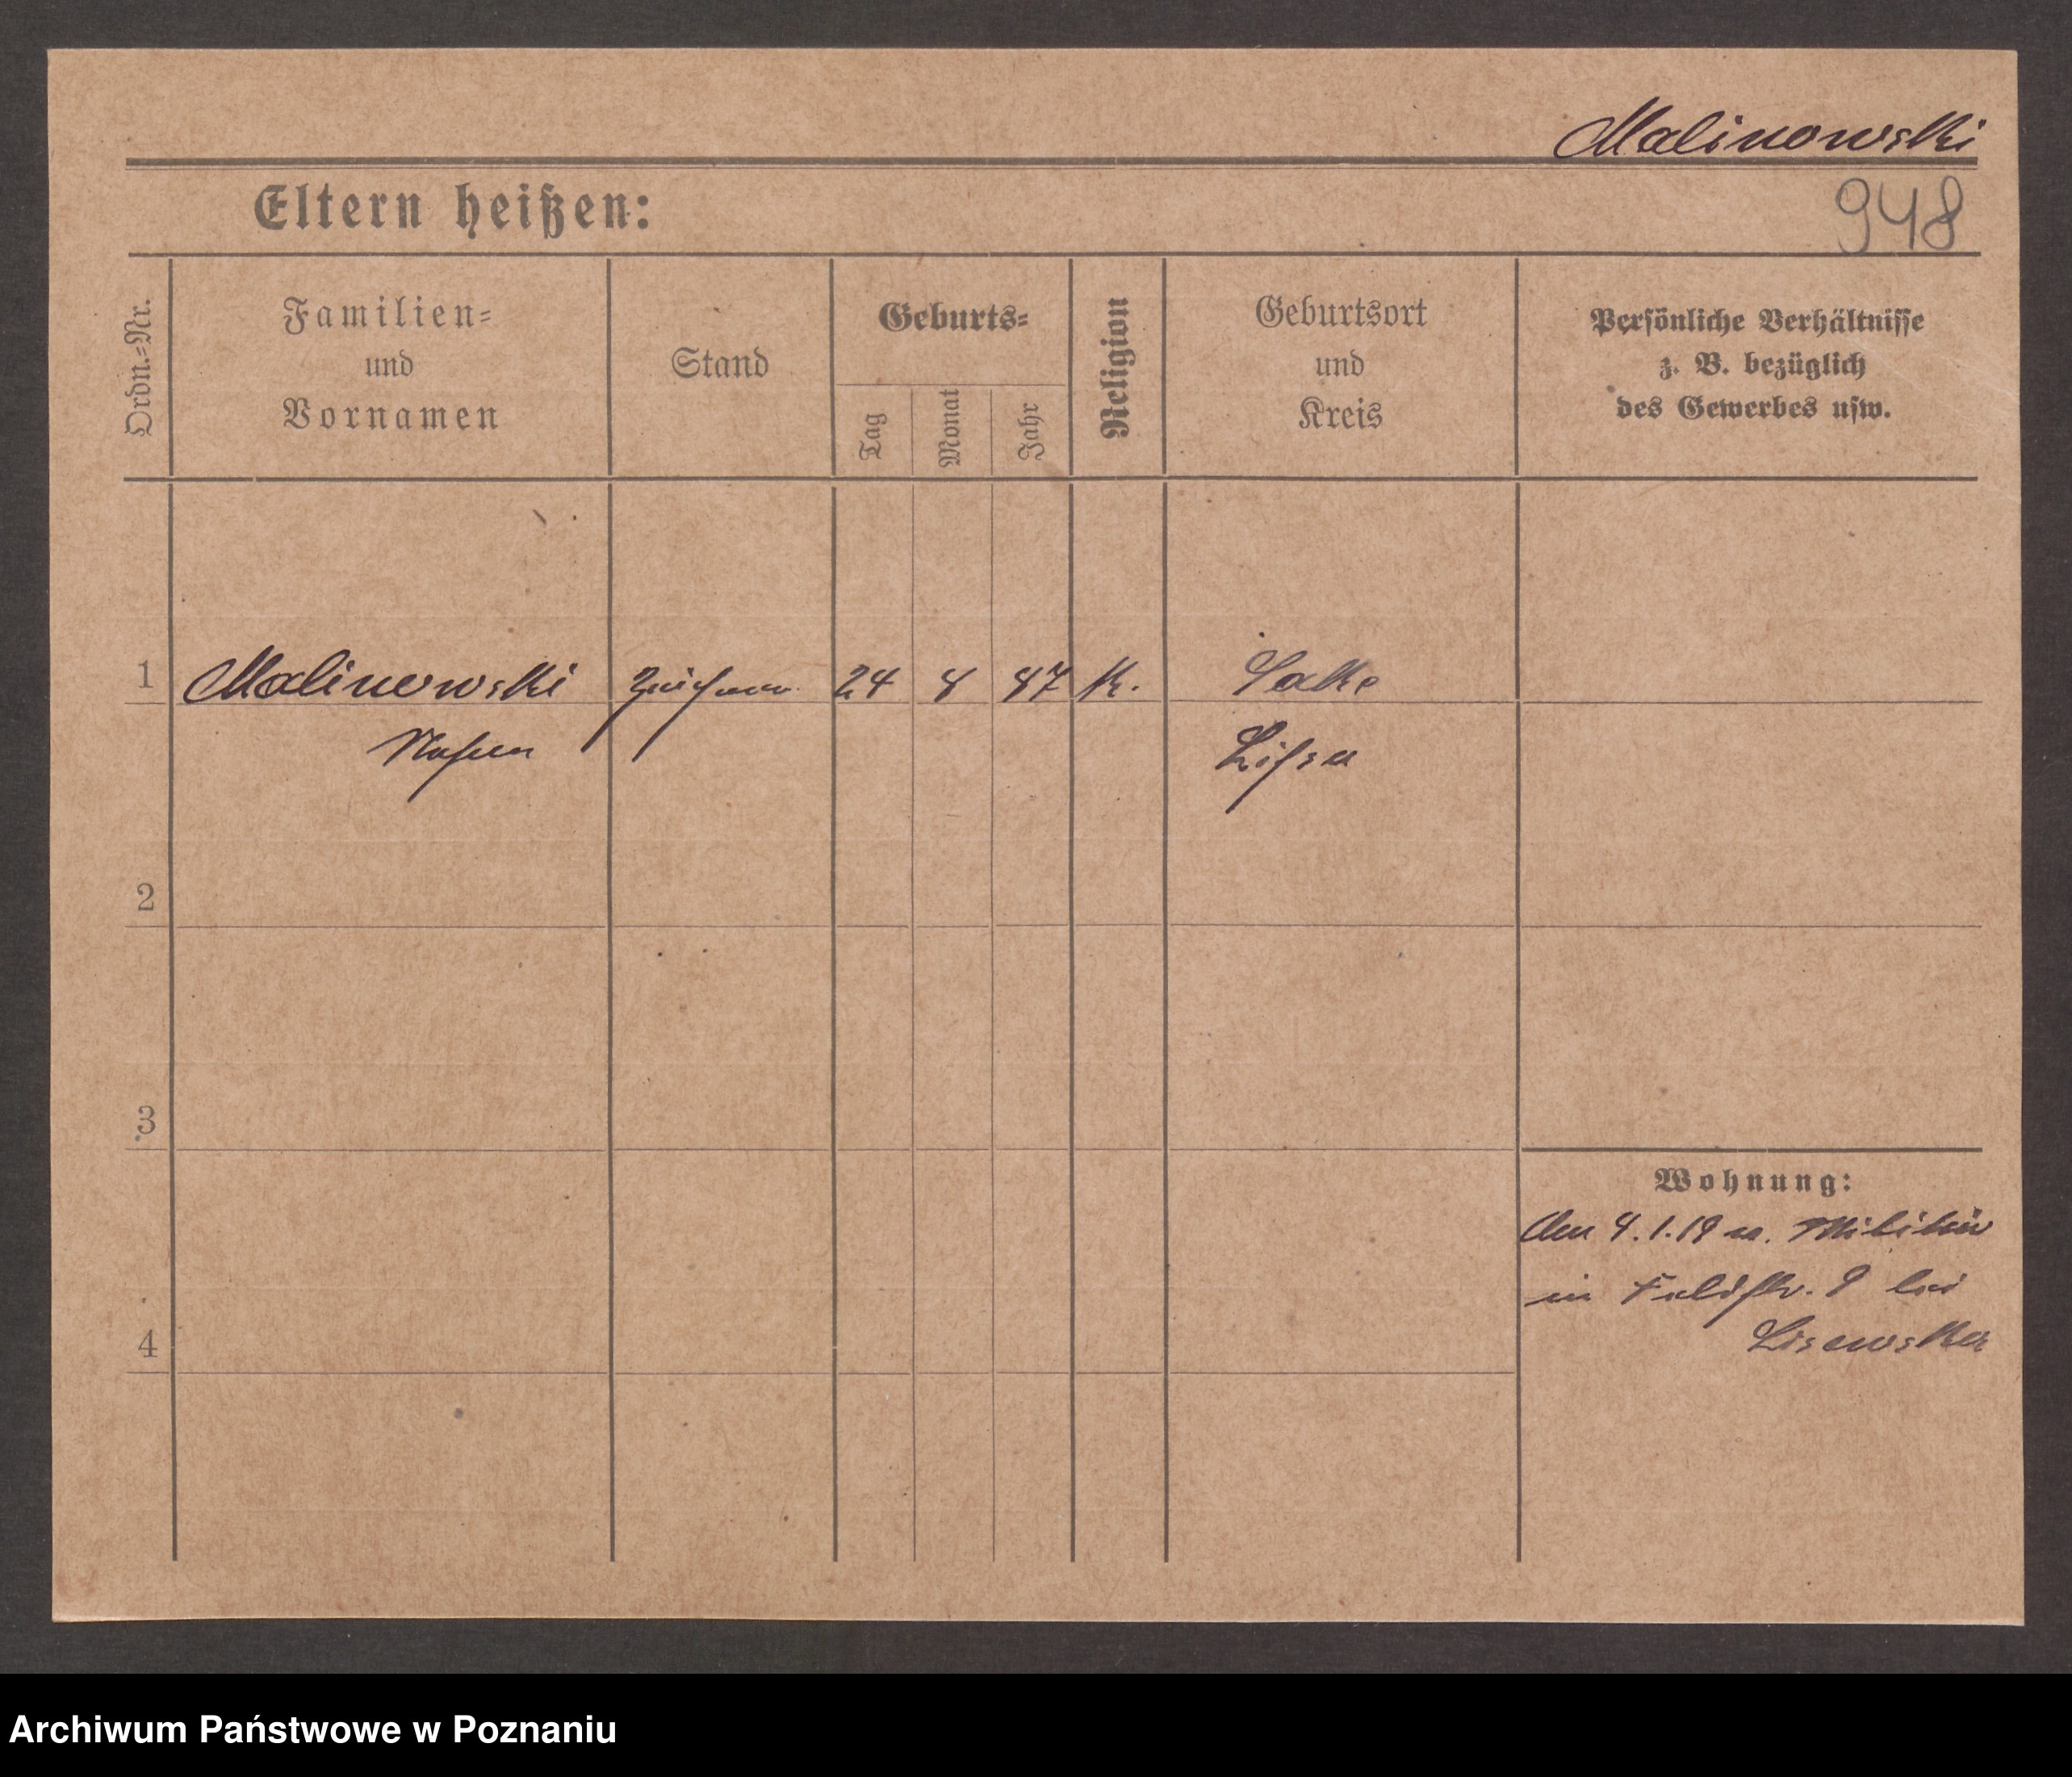 Malinowski
Eltern heißen:
948
Ordn.=Nr.
Familien=
und
Vornamen
Stand
Geburts=
Tag
Monat
Jahr
Religion
Geburtsort
und
Kreis
Persönliche Verhältnisse
z. B. bezüglich
des Gewerbes usw.
1 Malinowski 24 8 97 K.
Lissa
2
3
Wohnung:
4.1.19 Militär
in Feldstr. 9 bei
4 Lisewska
Archiwum Państwowe w Poznaniu